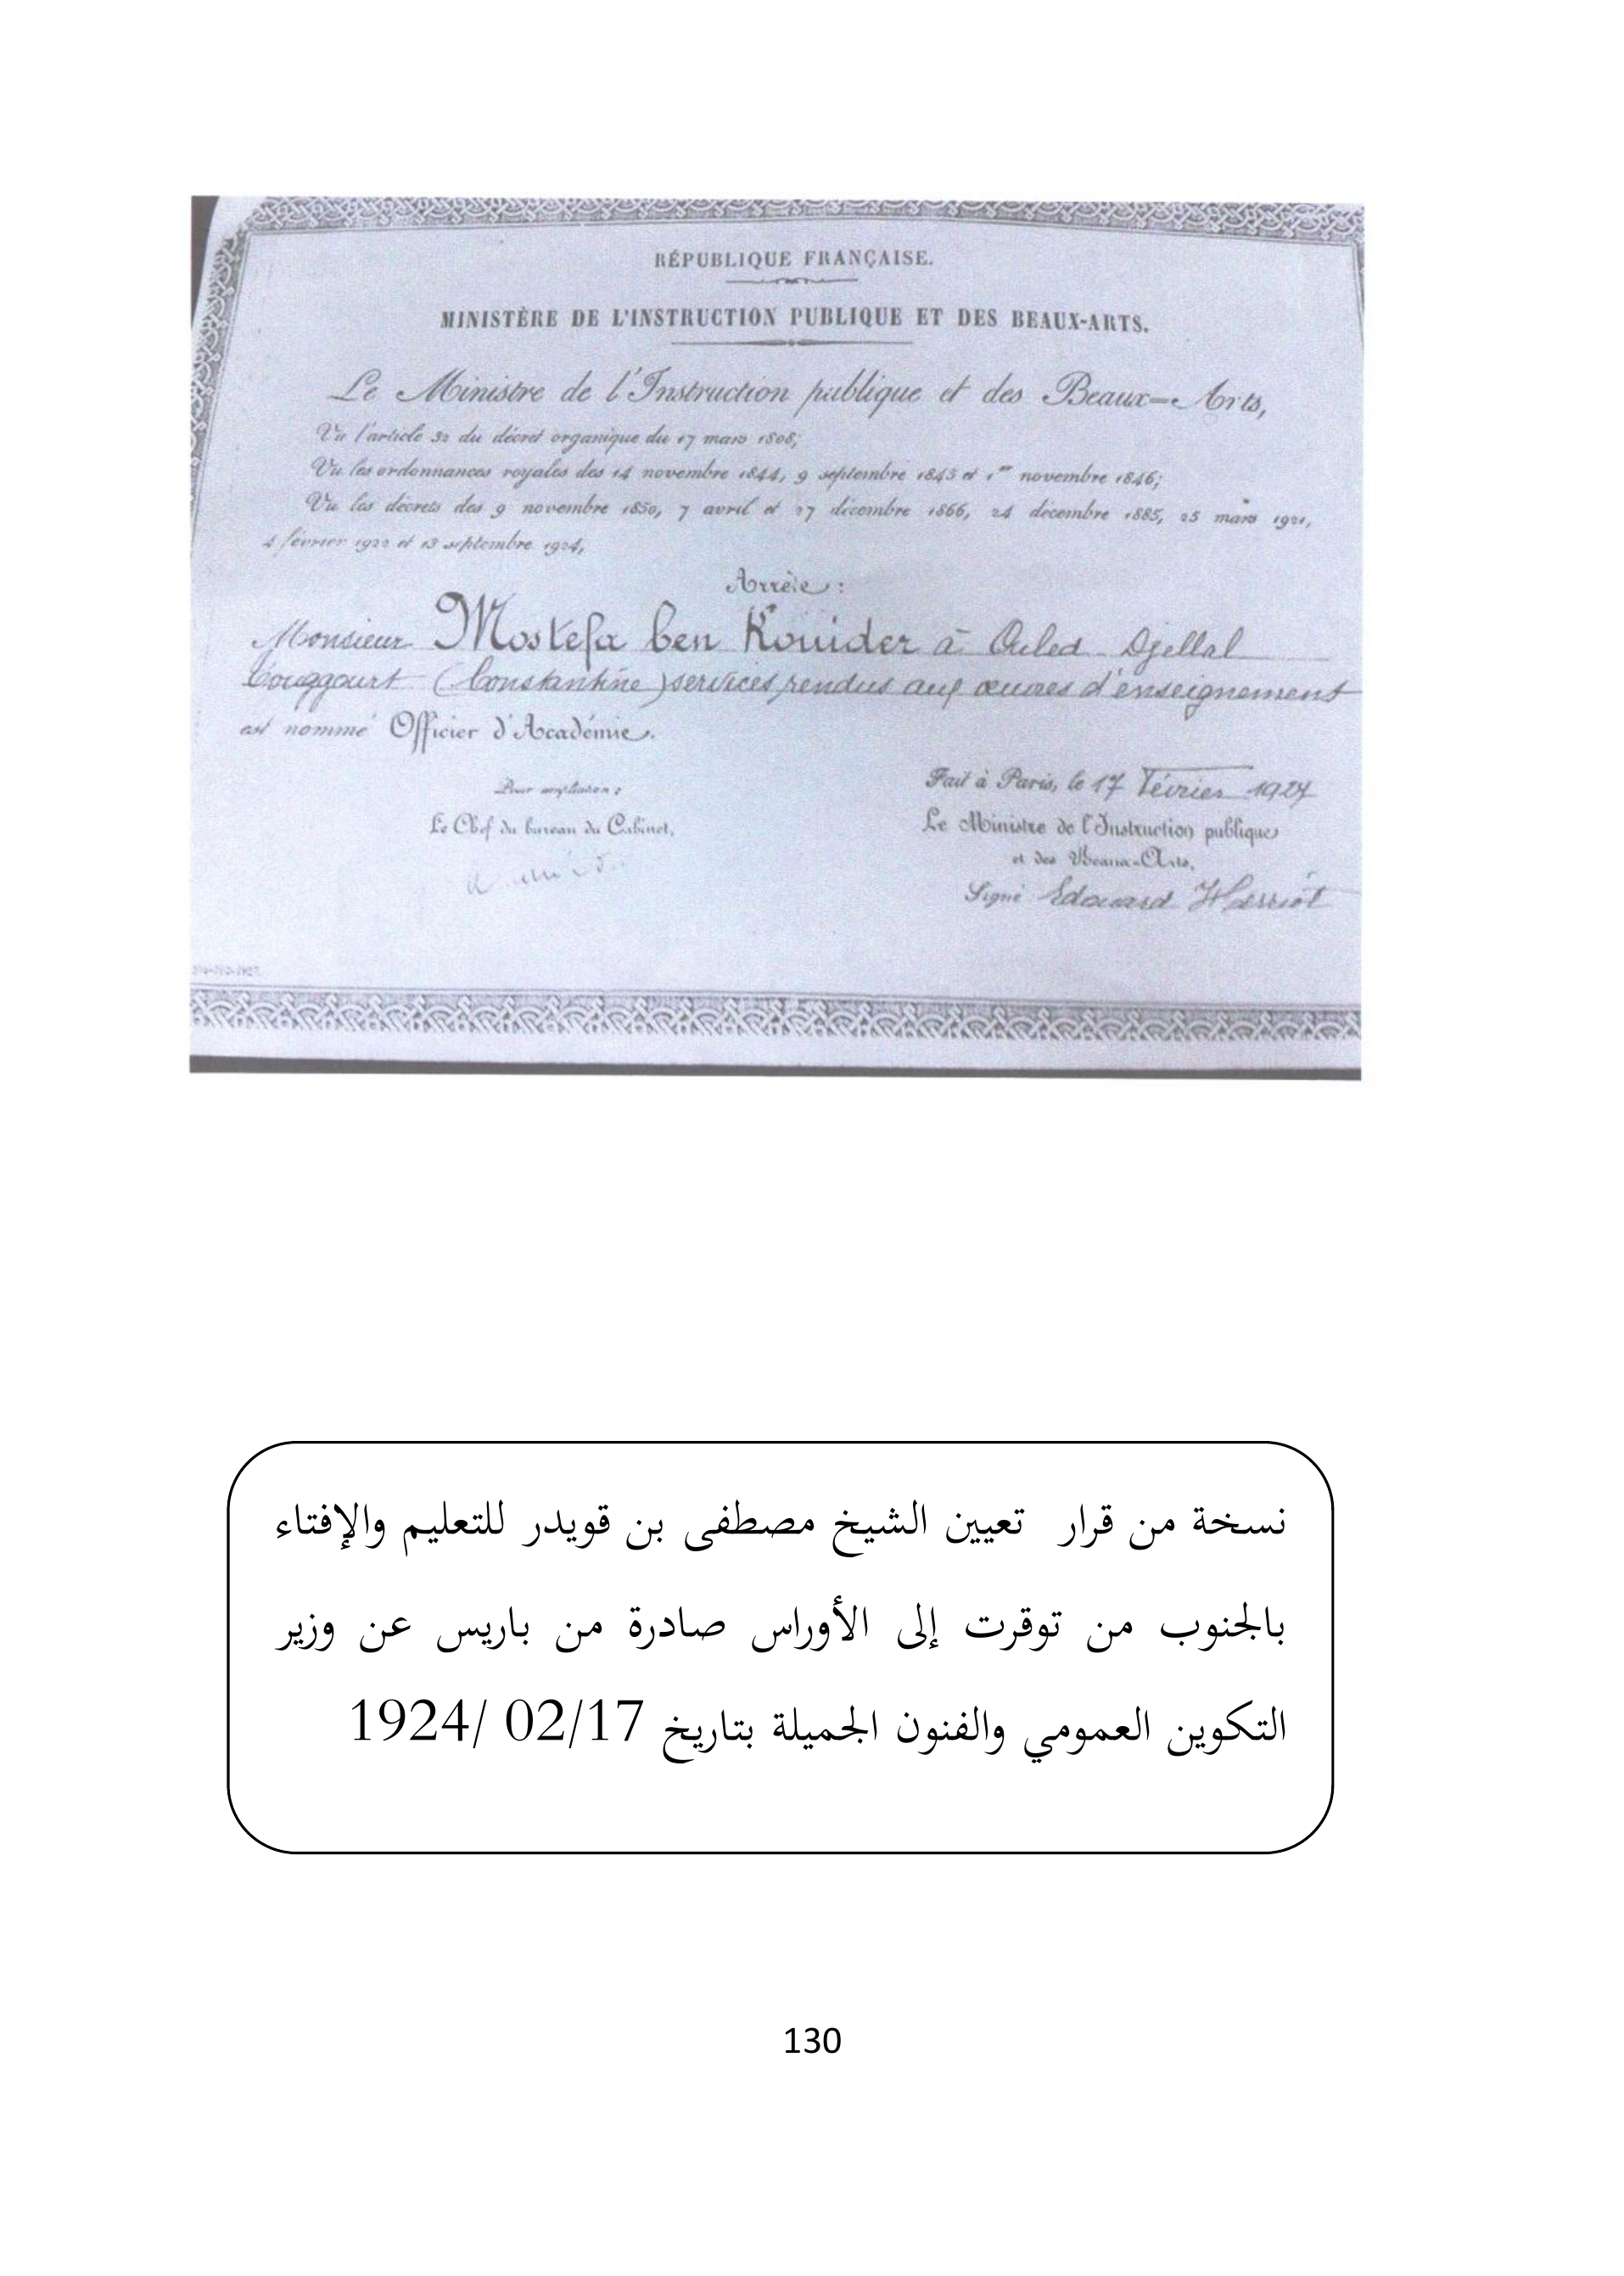 RÉPUBLIQUE FRANÇAISE.
MINISTÈRE DE L'INSTRUCTION PUBLIQUE ET DES BEAUX-ARTS.
Le Ministre de l'Instruction publique et des Beaux-Arts,
Vu l'article 32 du décret organique du 17 mars 1808;
Vu les ordonnances royales des 14 novembre 1844, 9 septembre 1845 et 1er novembre 1846;
Vu les décrets des 9 novembre 1850, 7 avril et 27 décembre 1866, 24 décembre 1885, 25 mars 1921,
4 février 1922 et 13 septembre 1924,
Arrête :
Monsieur Mostefa ben Kouider à Ouled-Djellal
Touggourt (Constantine) services rendus aux œuvres d'enseignement
est nommé Officier d'Académie.
Pour ampliation :
Le Chef du bureau du Cabinet,
Fait à Paris, le 17 Février 1927
Le Ministre de l'Instruction publique
et des Beaux-Arts,
Signé Edouard Herriot
نسخة من قرار تعيين الشيخ مصطفى بن قويدر للتعليم والإفتاء
بالجنوب من توقرت إلى الأوراس صادرة من باريس عن وزير
التكوين العمومي والفنون الجميلة بتاريخ 02/17 /1924
130